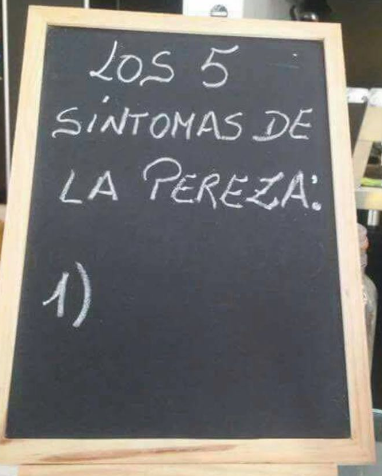 LOS 5
SÍNTOMAS DE
LA PEREZA:
1)